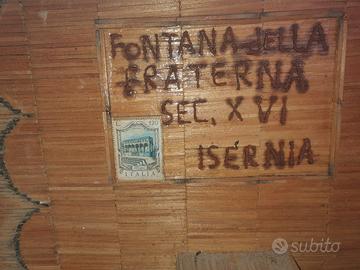 FONTANA DELLA
FRATERNA
SEC. XVI
ISERNIA
120
ITALIA
subito